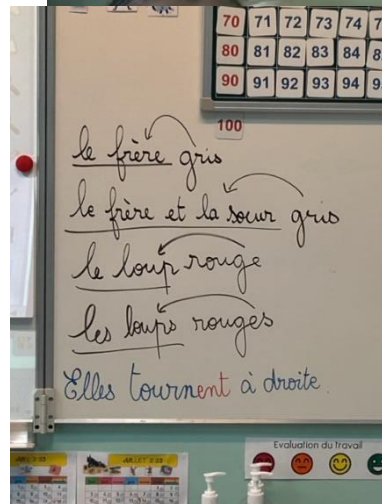 70 71 72 73 74 7
80 81 82 83 84 8
90 91 92 93 94 9
100
le frère gris
le frère et la soeur gris
le loup rouge
les loups rouges
Elles tournent à droite.
Evaluation du travail
JUILLET